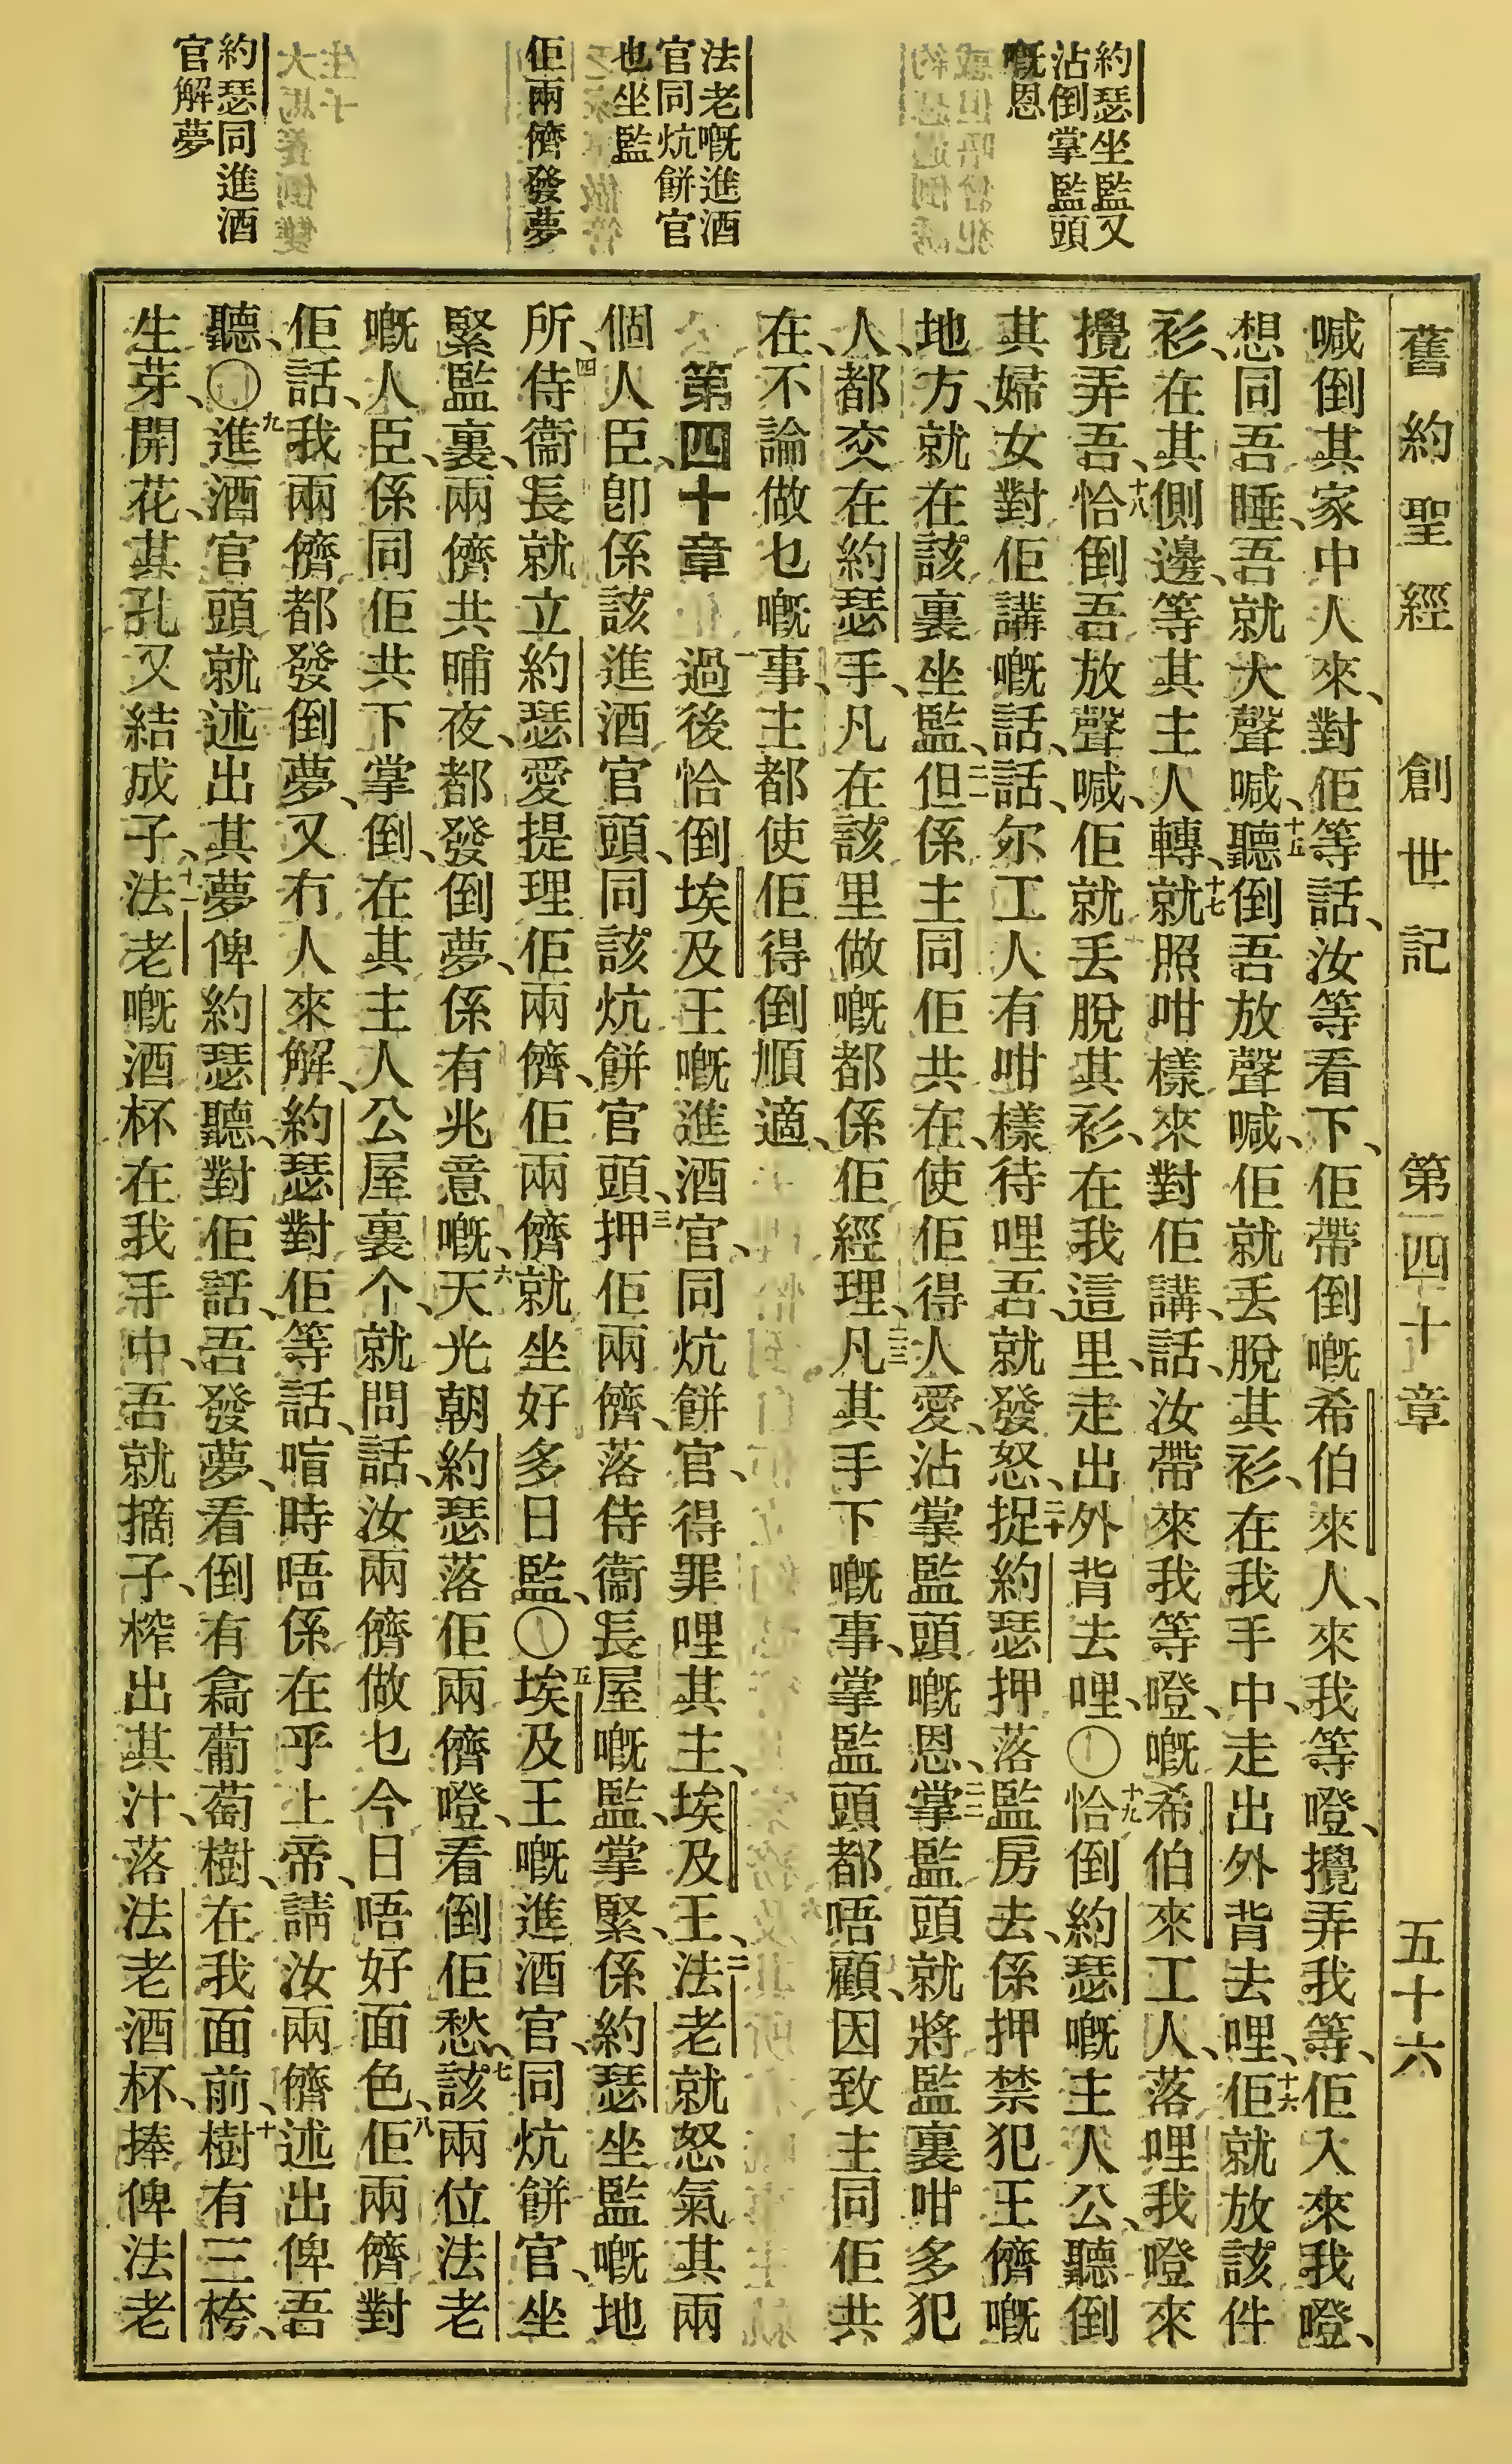 約瑟坐監又
沾倒掌監頭
嘅恩
法老嘅進酒
官同炕餅官
也坐監
佢兩儕發夢
約瑟同進酒
官解夢
舊約聖經 創世記 第四十章 五十六
喊倒其家中人來、對佢等話、汝等看下、佢帶倒嘅希伯來人、來我等噔、攪弄我等、佢入來我噔、
想同吾睡、吾就大聲喊、十五聽倒吾放聲喊、佢就丟脫其衫、在我手中、走出外背去哩、十六佢就放該件
衫、在其側邊、等其主人轉、十七就照咁樣來對佢講、話、汝帶來我等噔、嘅希伯來工人、落哩我噔來
攪弄吾、十八恰倒吾放聲喊、佢就丟脫其衫、在我這里、走出外背去哩、〇十九恰倒約瑟嘅主人公、聽倒
其婦女對佢講嘅話、話、尔工人有咁樣待哩吾、就發怒、二十捉約瑟押落監房去、係押禁犯王儕嘅
地方、就在該裏坐監、二一但係主同佢共在、使佢得人愛、沾掌監頭嘅恩、二二掌監頭就將監裏咁多犯
人、都交在約瑟手、凡在該里做嘅都係佢經理、二三凡其手下嘅事、掌監頭都唔顧、因致主同佢共
在、不論做乜嘅事、主都使佢得倒順適、
第四十章 一過後恰倒埃及王嘅進酒官、同炕餅官、得罪哩其主、埃及王、二法老就怒氣其兩
個人臣、卽係該進酒官頭、同該炕餅官頭、三押佢兩儕、落侍衞長屋嘅監、掌緊、係約瑟坐監嘅地
所、四侍衞長就立約瑟愛提理佢兩儕、佢兩儕就坐好多日監、〇五埃及王嘅進酒官、同炕餅官、坐
緊監裏、兩儕共晡夜、都發倒夢、係有兆意嘅、六天光朝約瑟落佢兩儕噔、看倒佢愁、七該兩位法老
嘅人臣、係同佢共下掌倒、在其主人公屋裏个、就問話、汝兩儕做乜今日唔好面色、八佢兩儕對
佢話、我兩儕都發倒夢、又冇人來解、約瑟對佢等話、喧時唔係在乎上帝、請汝兩儕述出俾吾
聽、〇九進酒官頭就述出其夢俾約瑟聽、對佢話、吾發夢、看倒有樖葡萄樹、在我面前、十樹有三桍、
生芽、開花、其孔又結成子、十一法老嘅酒杯在我手中、吾就摘子、榨出其汁、落法老酒杯、捧俾法老